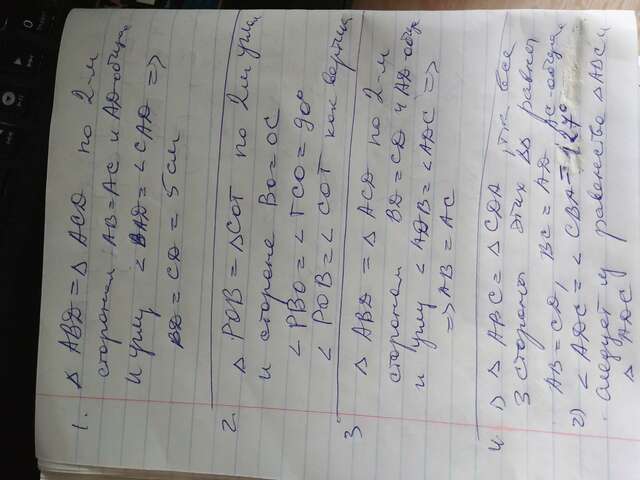 1. △ ABD = △ ACD по 2-м
сторонам: AB = AC и AD-общая
и углу ∠BAD = ∠CAD =>
BD = CD = 5 см
2. △ POB = △ COT по 2м углам
и стороне BO = OC
∠PBO = ∠TCO = 90°
∠POB = ∠COT как вертик
3 △ ABD = △ ACD по 2-м
сторонам BD = CD и AD-общ
и углу ∠ADB = ∠ADC =>
=> AB = AC
4. 1) △ ABC = △ CDA, т.к. все
3 стороны этих △△ равны
AB = CD, BC = AD, AC-общая
2) ∠ADC = ∠CBA = 127°
следует из равенства △ABC и
△ADC